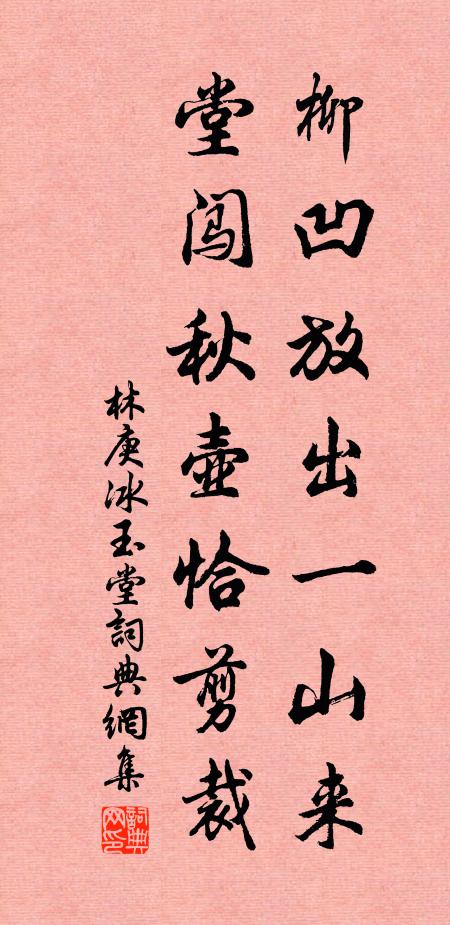 柳凹放出一山来
堂闯秋壶恰剪裁
林庚冰玉堂詞典網集
詞典网印